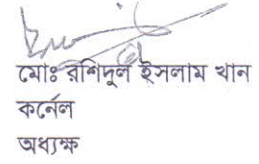 মোঃ রাশিদুল ইসলাম খান
কর্নেল
অধ্যক্ষ